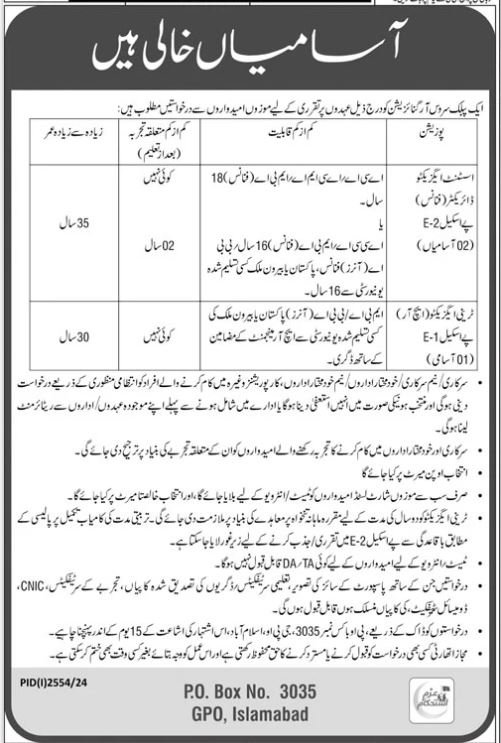 آسامیاں خالی ہیں
ایک پبلک سروس آرگنائزیشن کو درج ذیل عہدوں پر تقرری کے لیے موزوں امیدواروں سے درخواستیں مطلوب ہیں:
پوزیشن
کم از کم قابلیت
کم از کم متعلقہ تجربہ
(بعد از تعلیم)
زیادہ سے زیادہ عمر
اسسٹنٹ ایگزیکٹو
ڈائریکٹر (فنانس)
پے اسکیل E-2
(02 آسامیاں)
اے سی اے/ اے سی ایم اے/ ایم بی اے (فنانس) 18
سال۔
یا
اے سی سی اے/ ایم بی اے (فنانس) 16 سال/ بی بی
اے (آنرز) فنانس، پاکستان یا بیرون ملک کسی تسلیم شدہ
یونیورسٹی سے 16 سال۔
کوئی نہیں
02 سال
35 سال
ٹرینی ایگزیکٹو (ایچ آر)
پے اسکیل E-1
(01 آسامی)
ایم بی اے/ بی بی اے (آنرز) پاکستان یا بیرون ملک کی
کسی تسلیم شدہ یونیورسٹی سے ایچ آر مینجمنٹ کے مضامین
کے ساتھ ڈگری۔
کوئی نہیں
30 سال
• سرکاری/ نیم سرکاری/ خود مختار اداروں/ نیم خود مختار اداروں، کارپوریشنز وغیرہ میں کام کرنے والے افراد کو انتظامی منظوری کے ذریعے درخواست
دینی ہوگی اور منتخب ہونیکی صورت میں انہیں استعفیٰ دینا ہوگا یا ادارے میں شامل ہونے سے پہلے اپنے موجودہ عہدوں/ اداروں سے ریٹائرمنٹ
لینا ہوگی۔
• سرکاری اور خود مختار اداروں میں کام کرنے کا تجربہ رکھنے والے امیدواروں کو ان کے متعلقہ تجربے کی بنیاد پر ترجیح دی جائے گی۔
• انتخاب اوپن میرٹ پر کیا جائے گا
• صرف سب سے موزوں شارٹ لسٹڈ امیدواروں کو ٹیسٹ/ انٹرویو کے لیے بلایا جائے گا، اور انتخاب خالصتاً میرٹ پر کیا جائے گا۔
• ٹرینی ایگزیکٹو کو دو سال کی مدت کے لیے مقررہ ماہانہ تنخواہ پر معاہدے کی بنیاد پر ملازمت دی جائے گی۔ تربیتی مدت کی کامیاب تکمیل پر پالیسی کے
مطابق باقاعدگی سے E-2 میں تقرری/ جذب کرنے کے لیے زیر غور لایا جا سکتا ہے۔
• ٹیسٹ/ انٹرویو کے لیے امیدواروں کے لیے کوئی TA/DA قابل قبول نہیں ہوگا۔
• درخواستیں جن کے ساتھ پاسپورٹ سائز کی تصویر، تعلیمی سرٹیفکیٹس/ ڈگریوں کی تصدیق شدہ کاپیاں، تجربے کے سرٹیفکیٹس، CNIC،
ڈومیسائل سرٹیفکیٹ، کی کاپیاں منسلک ہوں قابل قبول ہوں گی۔
• درخواستوں کو ڈاک کے ذریعے، پی او باکس نمبر 3035، جی پی او، اسلام آباد، اس اشتہار کی اشاعت کے 15 یوم کے اندر پہنچنا چاہیے۔
• مجاز اتھارٹی کسی بھی درخواست کو قبول کرنے یا مسترد کرنے کا حق محفوظ رکھتی ہے اور اس عمل کو وجہ بتائے بغیر کسی وقت بھی ختم کر سکتی ہے۔
PID(I)2554/24
P.O. Box No. 3035
GPO, Islamabad
عزم
استحکام